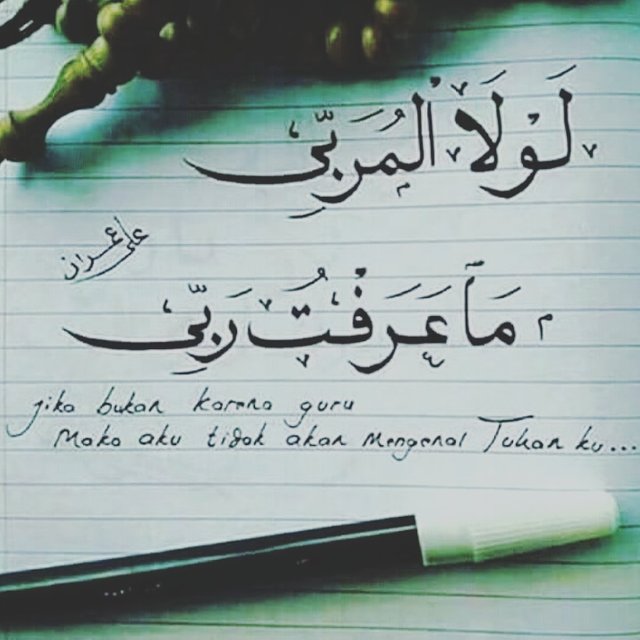 لَوْلَا الْمُرَبِّي
علي عمران
مَا عَرَفْتُ رَبِّي
jika bukan karena guru
Maka aku tidak akan Mengenal Tuhan ku...